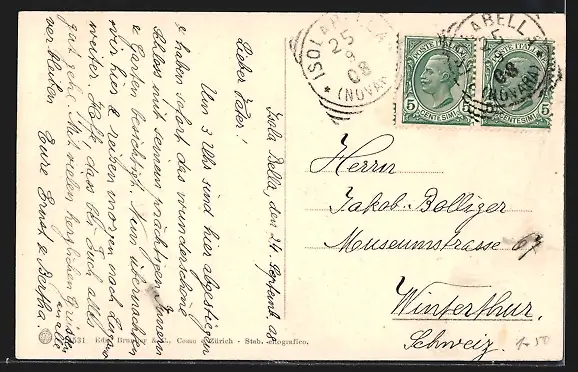 Isola Bella, den 24. Septemb. 08
Lieber Vater!
Um 3 Uhr sind hier abgestiegen
& haben sofort das wunderschöne
Schloss mit seinem prächtigen Innern
& Garten besichtigt. Nun übernachten
wir hier & reisen morgen nach Lugano
weiter. Hoffe, dass bei Euch alles
gut gehe. Mit vielen herzlichen Grüssen
an alle
verbleiben Eure Ernst & Bertha.
Herrn
Jakob Bolliger
Museumstrasse 67
Winterthur.
Schweiz.
ISOLA BELLA
25
9
08
(NOVARA)
POSTE ITALIANE
5 CENTESIMI 5
POSTE ITALIANE
5 CENTESIMI 5
ISOLA BELLA
25
08
(NOVARA)
Como - Zürich - Stab.